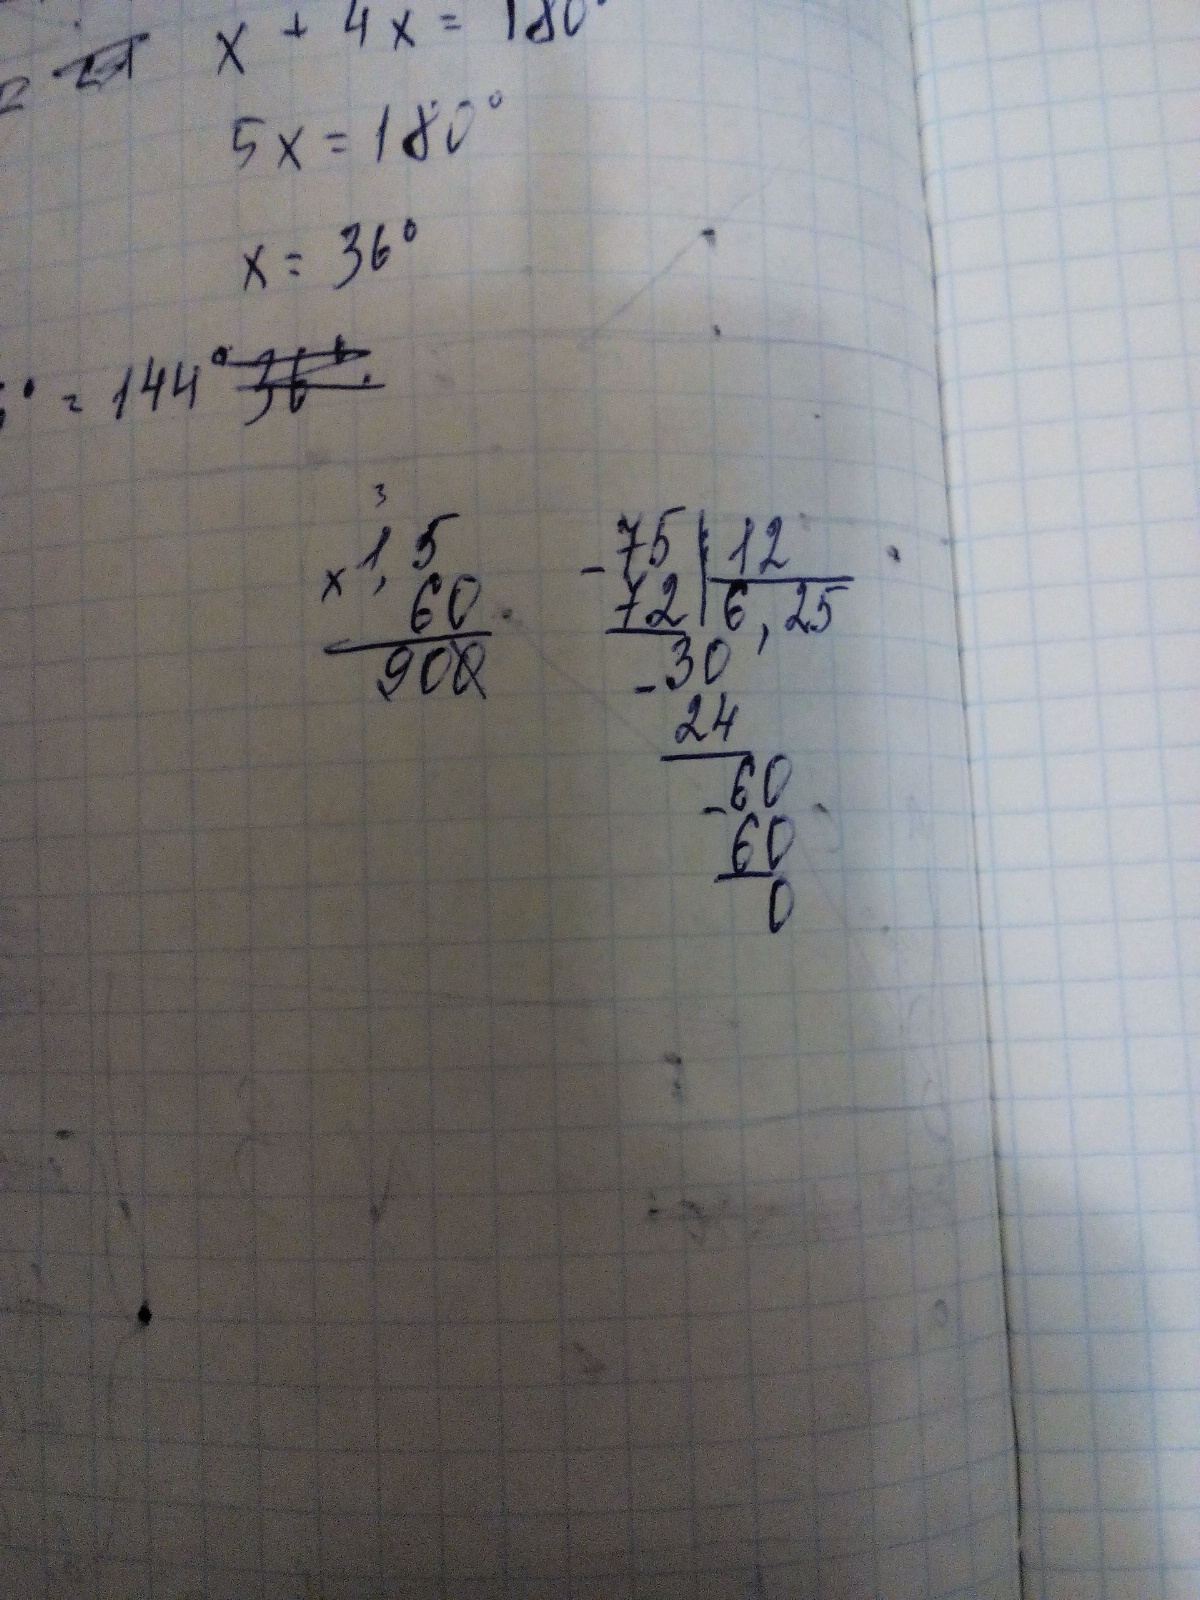 x + 4x = 180°
5x = 180°
x = 36°
° = 144°
3
1,5
x 60
900
- 75 | 12
72 | 6,25
- 30
24
- 60
60
0